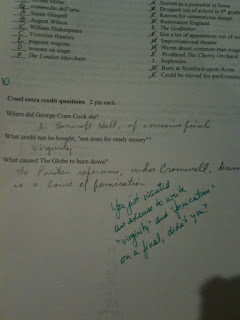 commedia dell'arte
Susan Glaspell
August Wilson
William Shakespeare
Victorian theaters
pageant wagons
women on stage
The London Merchant
Started as a journalist in Iowa
Dropped out of school in 9th grade
Known for ostentatious design
Restoration England
The Godfather
Got a lot of
Improvisational theater
Wrote about common-man
Produced The Cherry Orchard
Sophocles
Born at Stratford-upon-Avon
Could be moved for
10
Cruel extra credit questions 2 pts each
Where did George Cram Cook die?
Bancroft Hall, of excessive final
What could not be bought, "not even for ready money"?
Virginity
What caused The Globe to burn down?
the Puritan reformers, under Cromwell,
as a house of fornication
You just wanted
an excuse to write
"virginity" and "fornication"
on a final, didn't you?